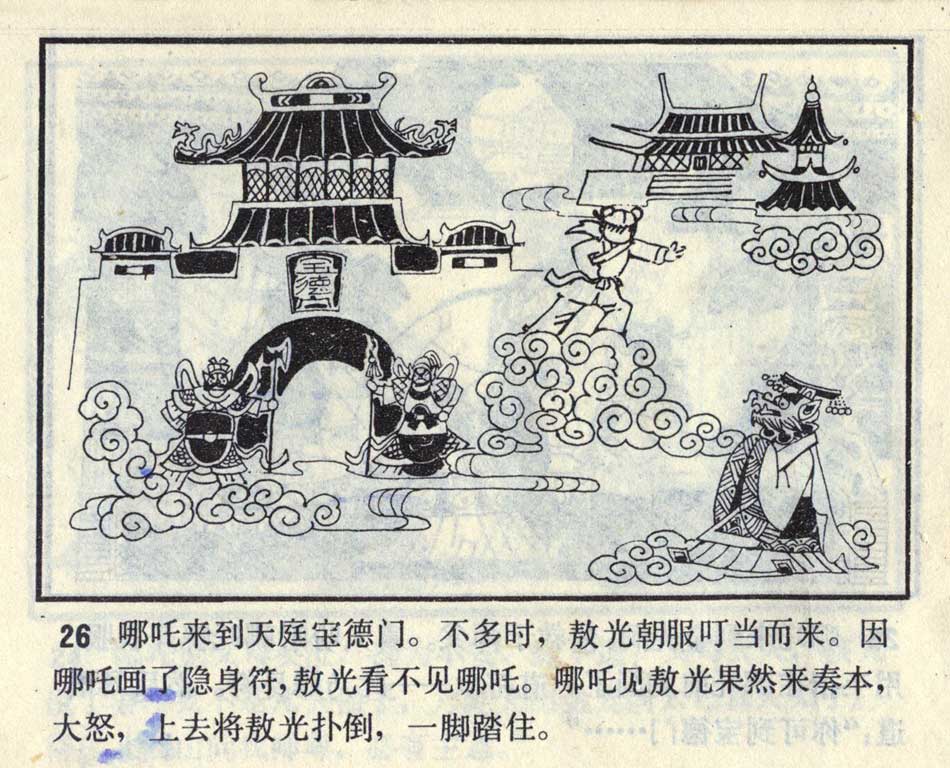 宝德门
26 哪吒来到天庭宝德门。不多时，敖光朝服叮当而来。因
哪吒画了隐身符，敖光看不见哪吒。哪吒见敖光果然来奏本，
大怒，上去将敖光扑倒，一脚踏住。
道：“你可到宝德门……”